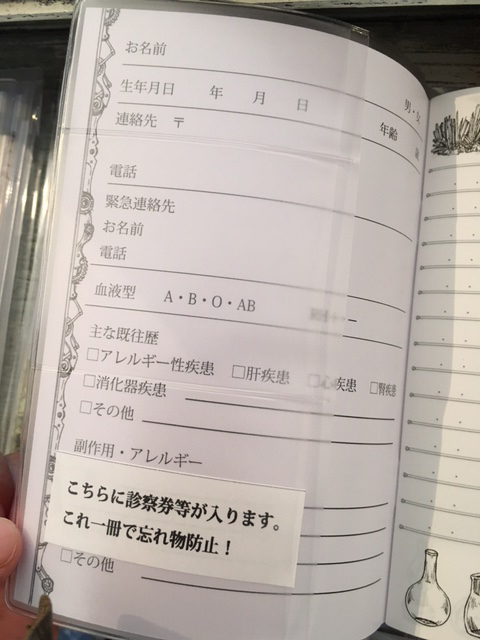 お名前
男・女
生年月日 年 月 日
年齢 歳
連絡先 〒
電話
緊急連絡先
お名前
電話
血液型 A・B・O・AB
主な既往歴
□アレルギー性疾患 □肝疾患 □心疾患 □腎疾患
□消化器疾患
□その他
副作用・アレルギー
こちらに診察券等が入ります。
これ一冊で忘れ物防止！
□その他